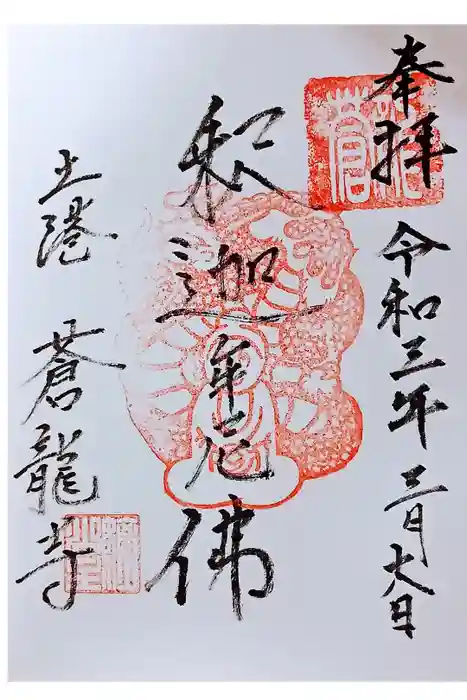 奉拝 令和三年三月六日
釈迦牟尼佛
土港 蒼龍寺